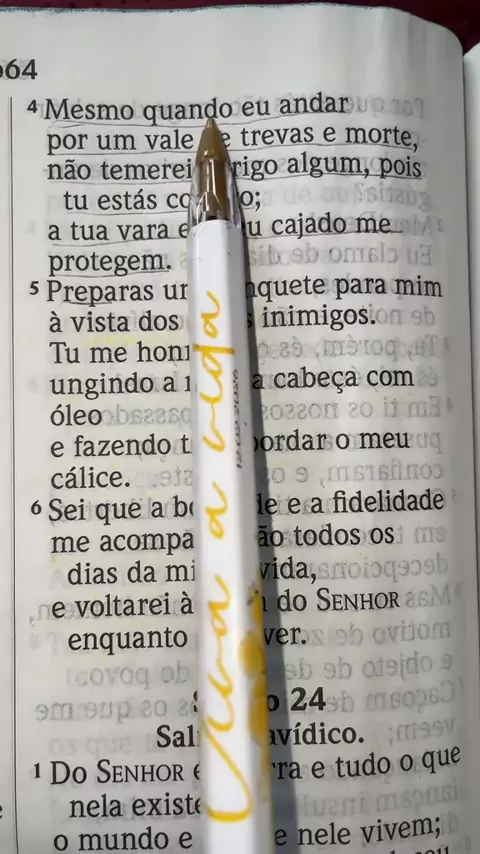 064
4 Mesmo quando eu andar
por um vale e trevas e morte,
não temerei rigo algum, pois
tu estás co o;
a tua vara e u cajado me
protegem.
5 Preparas u nquete para mim
à vista dos inimigos.
Tu me hon
ungindo a a cabeça com
óleo
e fazendo t bordar o meu
cálice.
6 Sei que a b de e a fidelidade
me acompa ão todos os
dias da mi vida,
e voltarei à do SENHOR
enquanto ver.
o 24
Sal avídico.
1 Do SENHOR rra e tudo o que
nela existe
o mundo e e nele vivem;
Viva a vida
12.02.2026